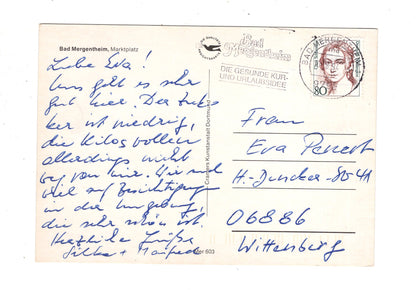 Bad Mergentheim, Marktplatz
Liebe Eva!
Uns geht es sehr
gut hier. Der Zucker
ist niedrig,
die Kilos wollen
allerdings nicht
weg von mir. Wir sind
viel auf Besichtigungen
in der Umgebung,
die sehr schön ist.
Herzliche Grüße
Silke + Manfred
Bad
Mergentheim
DIE GESUNDE KUR-
UND URLAUBSIDEE
BAD MERGENTHEIM
80
Kunstanstalt Dortmund
603
Frau
Eva
06886
Wittenberg